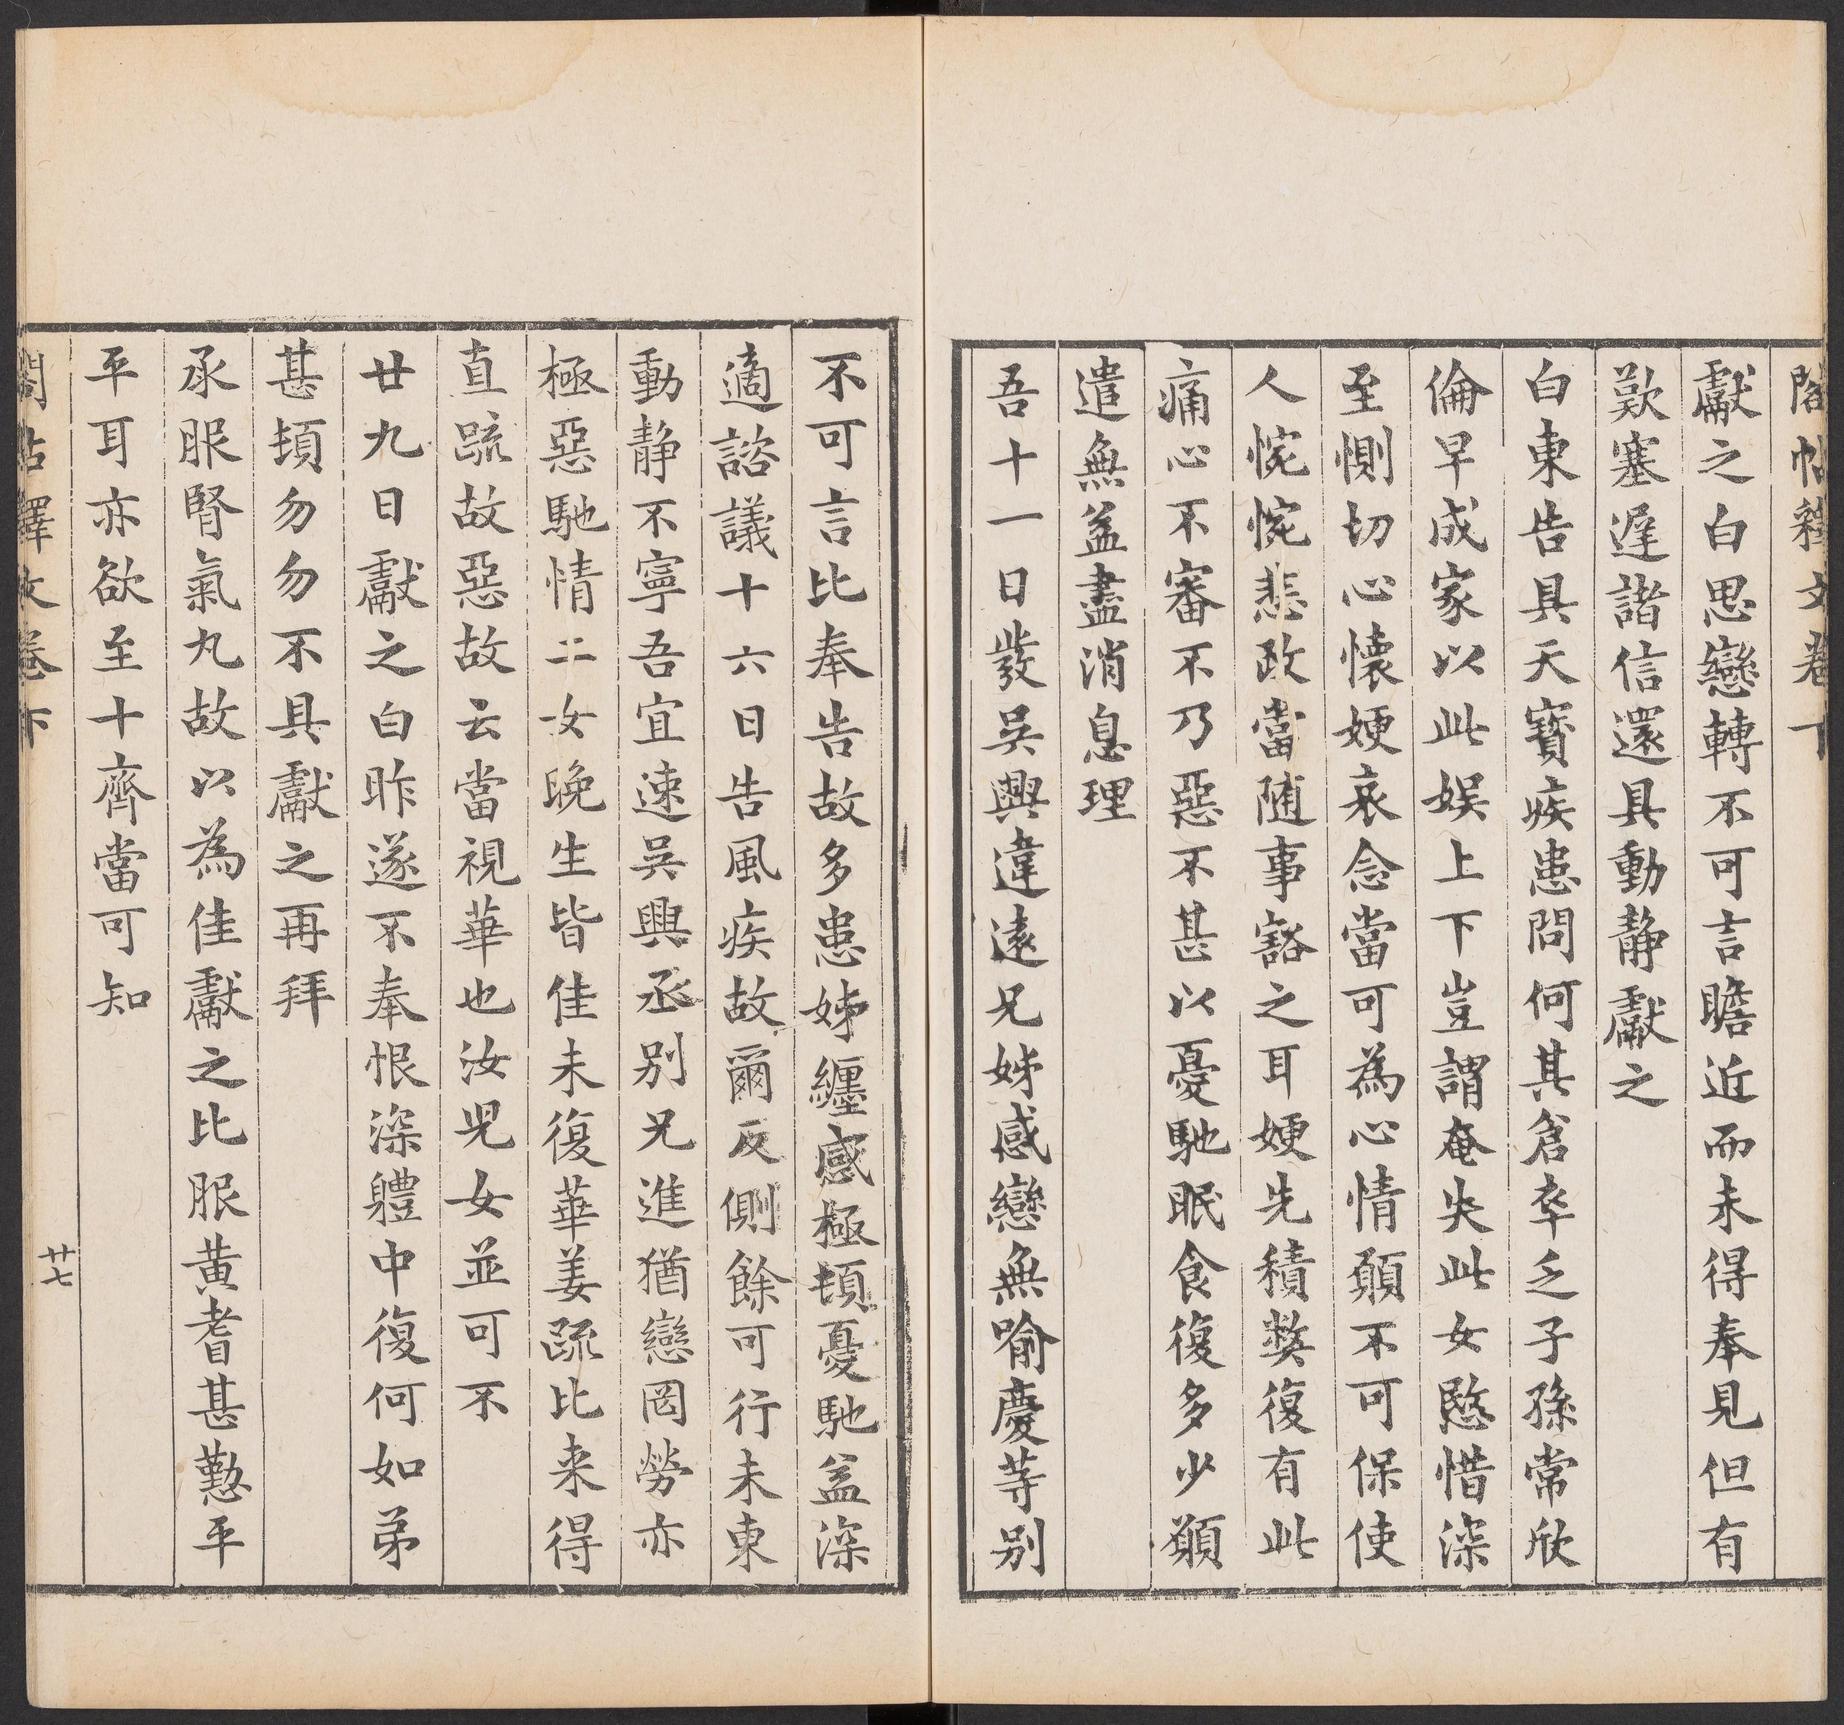 閣帖釋文卷下
獻之白思戀轉不可言瞻近而未得奉見但有
歎塞遲諸信還具動靜獻之
白東告具天寶疾患問何其倉卒乏子孫常欣
倫早成家以此娛上下豈謂奄失此女愍惜深
至惻切心懷㛹哀念當可為心情願不可保使
人惋惋悲政當隨事豁之耳㛹先積弊復有此
痛心不審不乃惡不甚以憂馳眠食復多少願
遣無益盡消息理
吾十一日發吳興違遠兄姊感戀無喻慶等別
不可言比奉告故多患姊纏感極頓憂馳益深
適諮議十六日告風疾故爾反側餘可行未東
動靜不寧吾宜速吳興丞別兄進猶戀罔勞亦
極惡馳情二女晚生皆佳未復華姜疏比来得
直疏故惡故云當視華也汝兒女並可不
廿九日獻之白昨遂不奉恨深體中復何如弟
甚頓勿勿不具獻之再拜
承服腎氣丸故以為佳獻之比服黃耆甚懃平
平耳亦欲至十齊當可知
閣帖釋文卷下
廿七